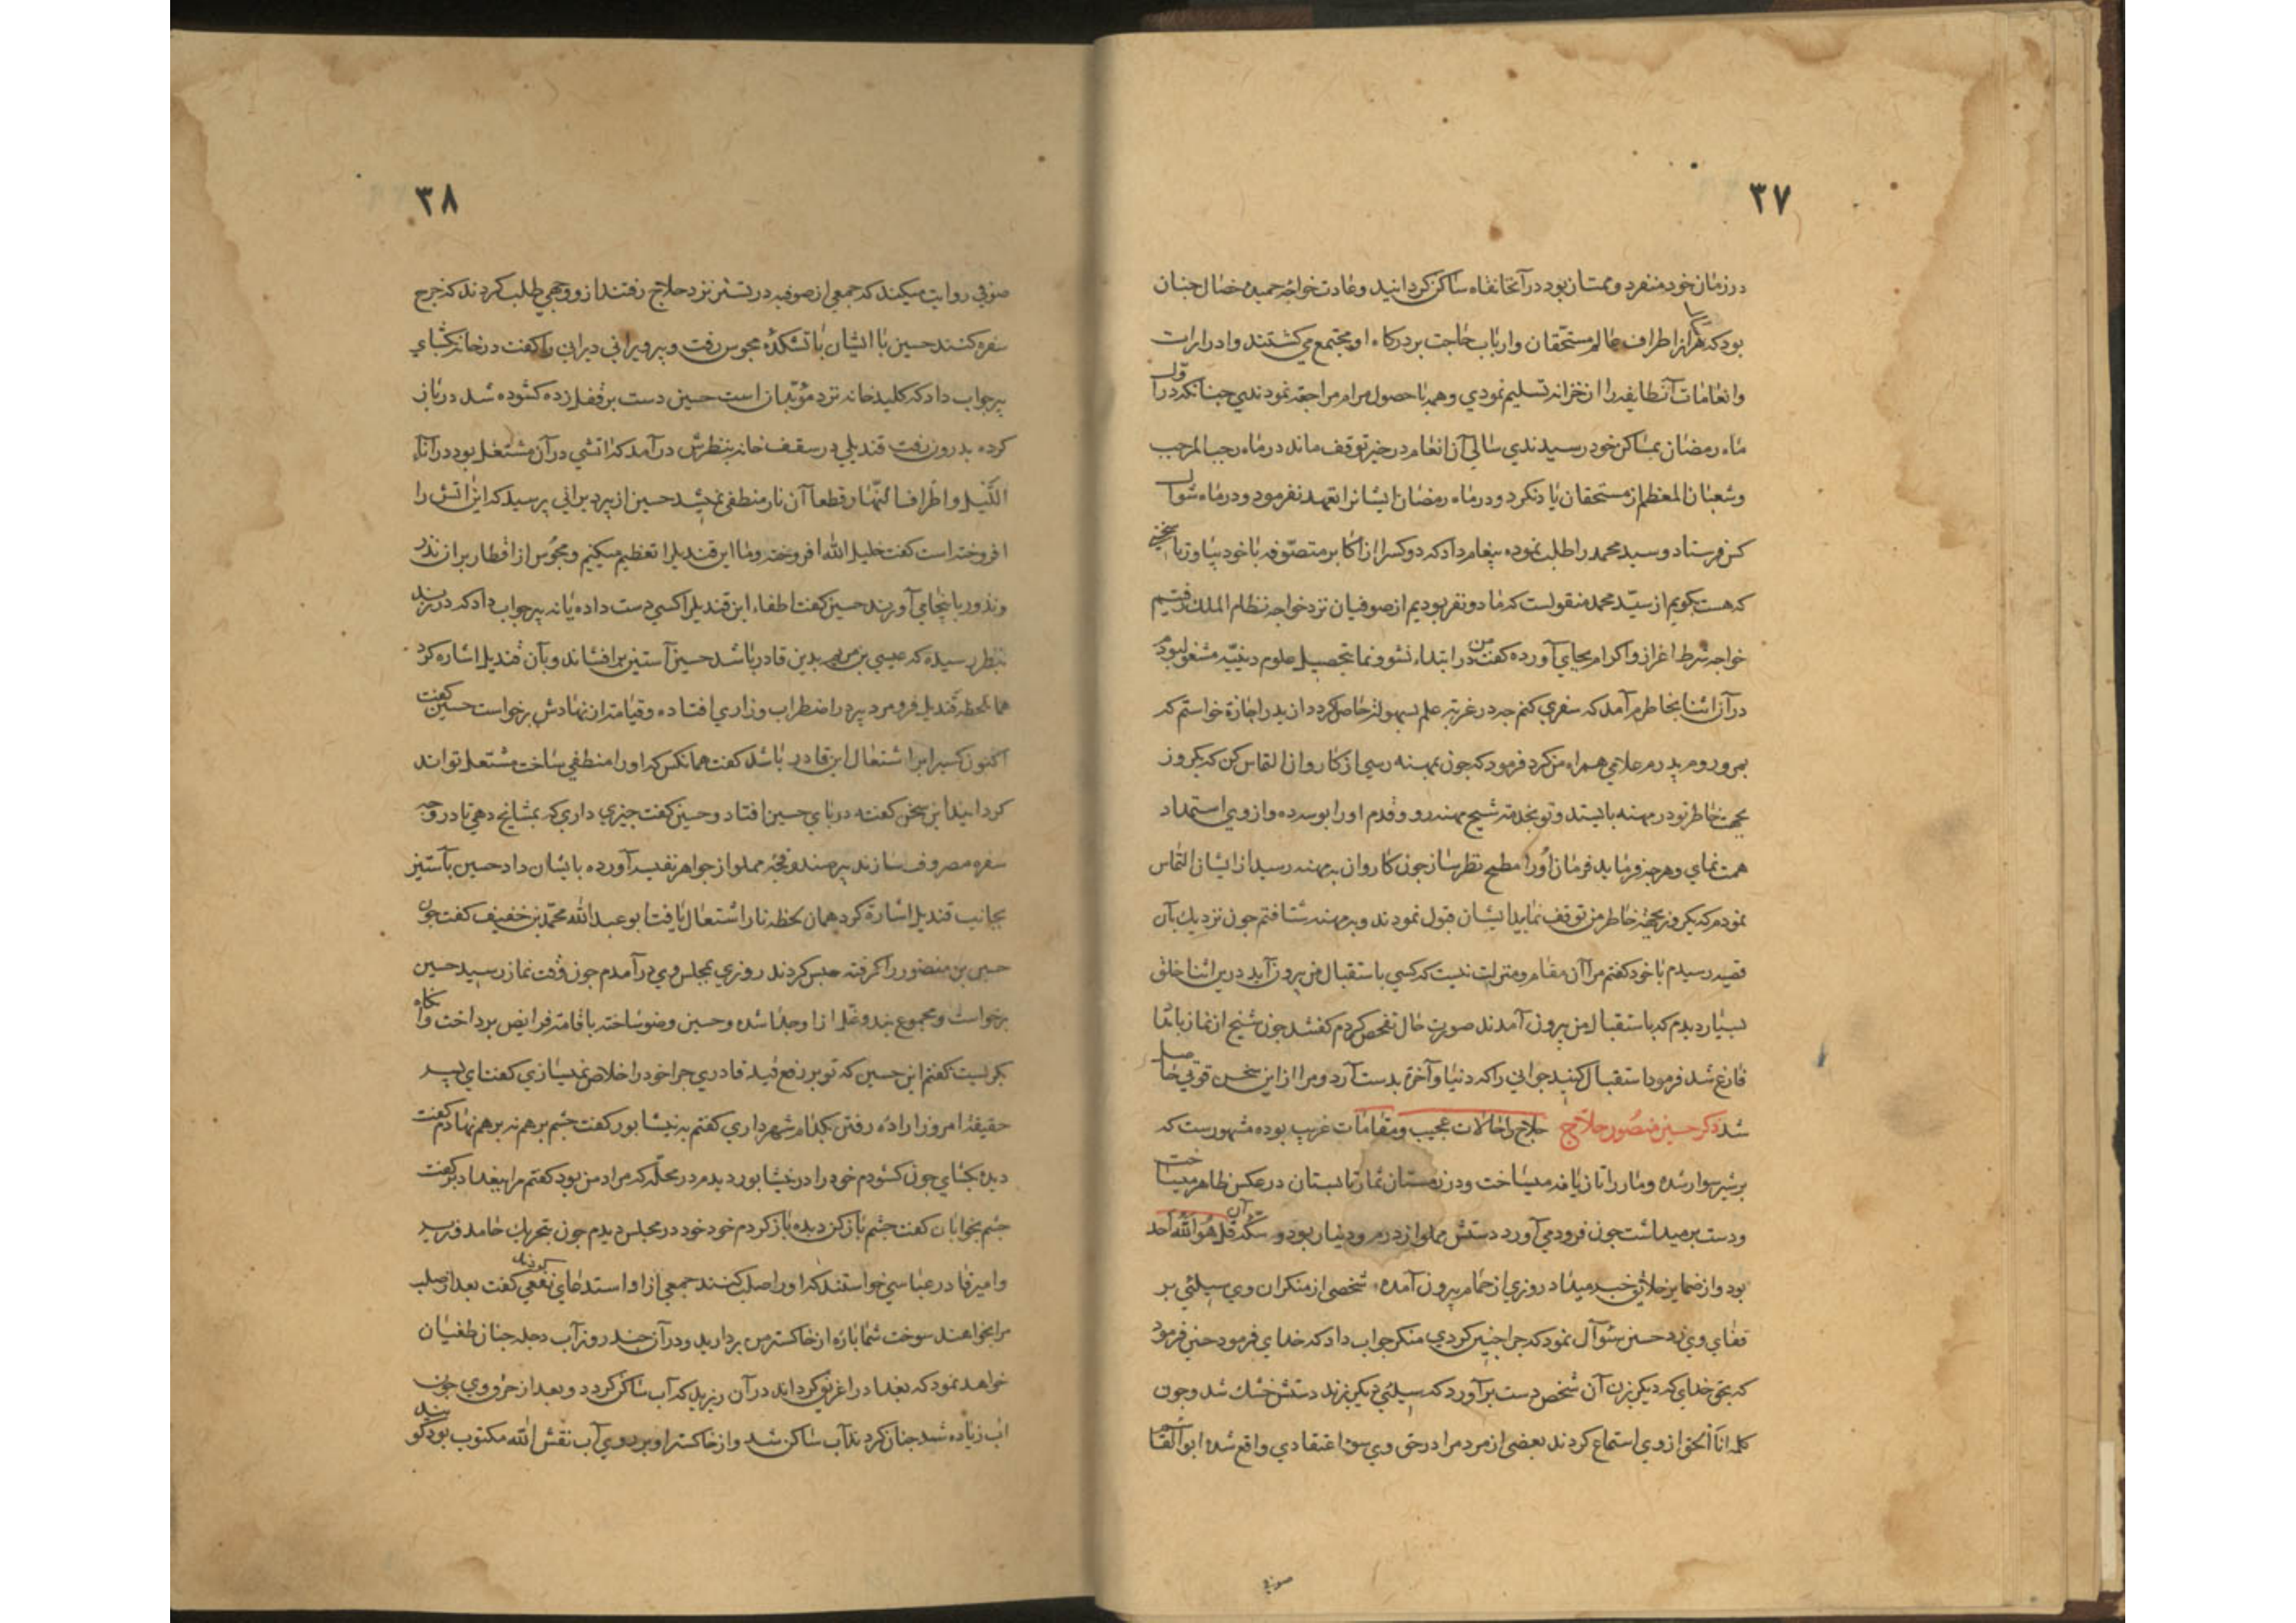 ۳۷
در زمان خود منفرد و ممتاز بود در آنخانقاه ساکن کردانید و عادت خواجه حمیده خصال چنان
بود که هر از اطراف عالم مستحقان و ارباب حاجت بر درکاه او مجتمع می کشتند و ادرارات
و انعامات آنطایفه را از خزانه تسلیم نمودی و همه با حصول مرام مراجعه نمودندی چنانکه در اوّل
ماه رمضان بمساکن خود رسیدندی سالی آن انعام در حیز توقف ماند در ماه رجب المرجب
و شعبان المعظم از مستحقان یاد نکرد و در ماه رمضان ایشانرا تعهد نفرمود و در ماه شوال
کس فرستاد و سید محمد را طلب نموده پیغام داد که دو کس را از اکابر متصوّفه با خود بیاور تا سخنی
که هست بکویم از سیّد محمد منقولست که ما دو نفر بودیم از صوفیان نزد خواجه نظام الملک رفتیم
خواجه شرط اعزاز و اکرام بجای آورده کفت من در ابتداء نشو و نما بتحصیل علوم دینیّه مشغول بودم
در آن اثنا بخاطرم آمد که سفری کنم چه در غربت علم بسهولت حاصل کردد از پدر اجازة خواستم که
بمرو روم پدرم غلامی همراه من کرد فرمود که چون بمهنه رسی از کاروان التماس کن که یکروز
بجهت خاطر تو در مهنه بایستند و تو بخدمت شیخ مهنه رو و قدم او را بوسه ده و از وی استمداد
همت نمای و هر چه فرماید فرمان او را مطمح نظر ساز چون کاروان به مهنه رسید از ایشان التماس
نمودم که یکروز بجهة خاطر من توقف نمایید ایشان قبول نمودند و به مهنه شتافتم چون نزدیک بآن
قصبه رسیدم با خود کفتم مرا آن مقام و منزلت نیست که کسی باستقبال من بیرون آید درین اثنا خلق
بسیار دیدم که باستقبال من بیرون آمدند صورت حال تفحص کردم کفتند چون شیخ از نماز بامداد
فارغ شد فرمود استقبال کنید جوانی را که دنیا و آخرة بدست آرد و مرا از این سخن قوتی حاصل
شد ذکر حسین منصور حلاج حلاج را حالات عجیب و مقامات غریب بوده مشهورست که
بر شیر سوار شده و مار را تازیانه میساخت و در زمستان ثمار تابستان در عکس ظاهر میساخت
و دست بر میداشت چون فرود می آورد دستش مملو از درم و دینار بود و سکه آن قل هو الله احد
بود و از ضمایر خلایق خبر میداد روزی از حمام بیرون آمده شخصی از منکران وی سیلئی بر
قفای وی زد حسین سوآل نمود که چرا چنین کردی منکر جواب داد که خدای فرمود چنین فرمود
که بحق خدای که دیکر بزن آن شخص دست برآورد که سیلئی دیکر بزند دستش خشک شد و چون
کلمه انا الحق از وی استماع کردند بعضی از مردم را در حق وی سوء اعتقادی واقع شد ابو القاسم
صوفی
۳۸
صوفی روایت میکند که جمعی از صوفیه در تستر نزد حلاج رفتند از و وجهی طلب کردند که خرج
سفره کنند حسین با ایشان باتشکدۀ مجوس رفت و پیر ویرانی دیرانی را کفت در خانه بکشای
پیر جواب داد که کلید خانه نزد موبدان است حسین دست بر قفل زده کشوده شد در باز
کرده بدرون رفت قندیلی در سقف خانه بنظرش در آمد که اتشی در آن مشتعل بود در آناء
اللّیل و اطراف النّهار و قطعا آن نار منطفی نمیشد حسین از پیر دیرانی پرسید که این اتش را
افروخته است کفت خلیل الله افروخته و ما این قندیل را تعظیم میکنیم و مجوس از اقطار بر از نذر
و نذور باینجا می آورند حسین کفت اطفاء این قندیل را کسی دست داده یا نه پیر جواب داد که در زند
بنظر رسیده که عیسی بن مریم بدین قادر باشد حسین آستین بر افشاند و بآن قندیل اشاره کرد
همانلحظه قندیل فرو مرد پیر در اضطراب و زاری افتاده و قیامت از نهادش برخواست حسین کفت
اکنون کسیرا بر اشتعال این قادر باشد کفت همانکس که او را منطفی ساخت مشتعل تواند
کردانید این سخن کفته در پای حسین افتاد و حسین کفت چیزی داری که بمشایخ دهی تا در وجه
سفره مصروف سازند پیر صندوقچۀ مملو از جواهر نفیسه آورده بایشان داد حسین بآستین
بجانب قندیل اشارة کرد همان لحظه نار اشتعال یافت ابو عبدالله محمّد بن خفیف کفت چون
حسین بن منصور را کرفته حبس کردند روزی بمجلس وی در آمدم چون وقت نماز رسید حسین
برخواست و مجموع بند و غل از او جدا شده و حسین وضو ساخته باقامت فرایض پرداخت و آنکاه
بکریست کفتم این حسین که تو بر رفع قید قادری چرا خود را خلاص نمیسازی کفت ای پسر
حقیقة امروز اراده رفتن بکدام شهر داری کفتم به نیشابور کفت چشم بر هم نه بر هم نهادم کفت
دیده بکشای چون کشودم خود را در نیشابور دیدم در محلّه که مراد من بود کفتم مرا ببغداد بر کفت
چشم بخوابان کفت چشم باز کن دیده باز کردم خود خود در مجلس دیدم چون بتحریک حامد وزیر
و امیر قادر عباسی خواستند که او را صلب کنند جمعی از او استدعای نفعی کردند کفت بعد از صلب
مرا بخواهند سوخت شما پارۀ از خاکستر من بردارید و در آن چند روز آب دجله چنان طغیان
خواهد نمود که بغداد را غریق کرداند در آن ریزید که آب ساکن کردد و بعد از حرق وی چون
آب زیاده شد چنان کردند آب ساکن شد و از خاکستر او بر روی آب نقش الله مکتوب بود کویند